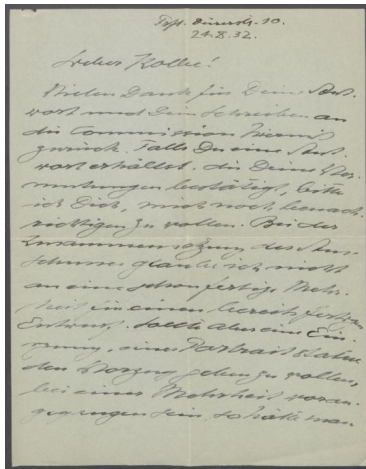 21.8.32.
Lieber Kolbe!
Vielen Dank für Deine Ant-
wort und Dein Schreiben an
die Commission hiermit
zurück. Falls Du eine Ant-
wort erhältst, die Deine Ver-
mutungen bestätigt, bitte
ich Dich, mich noch benach-
richtigen zu wollen. Bei der
Zusammensetzung des Aus-
schusses glaube ich nicht
an eine schon fertige Mehr-
heit für einen bereits fertigen
Entwurf. Sollte aber eine Ein-
einer Portrait Statue
den Vorzug geben zu wollen,
bei einer Mehrheit voran-
gegangen sein, so hätte man